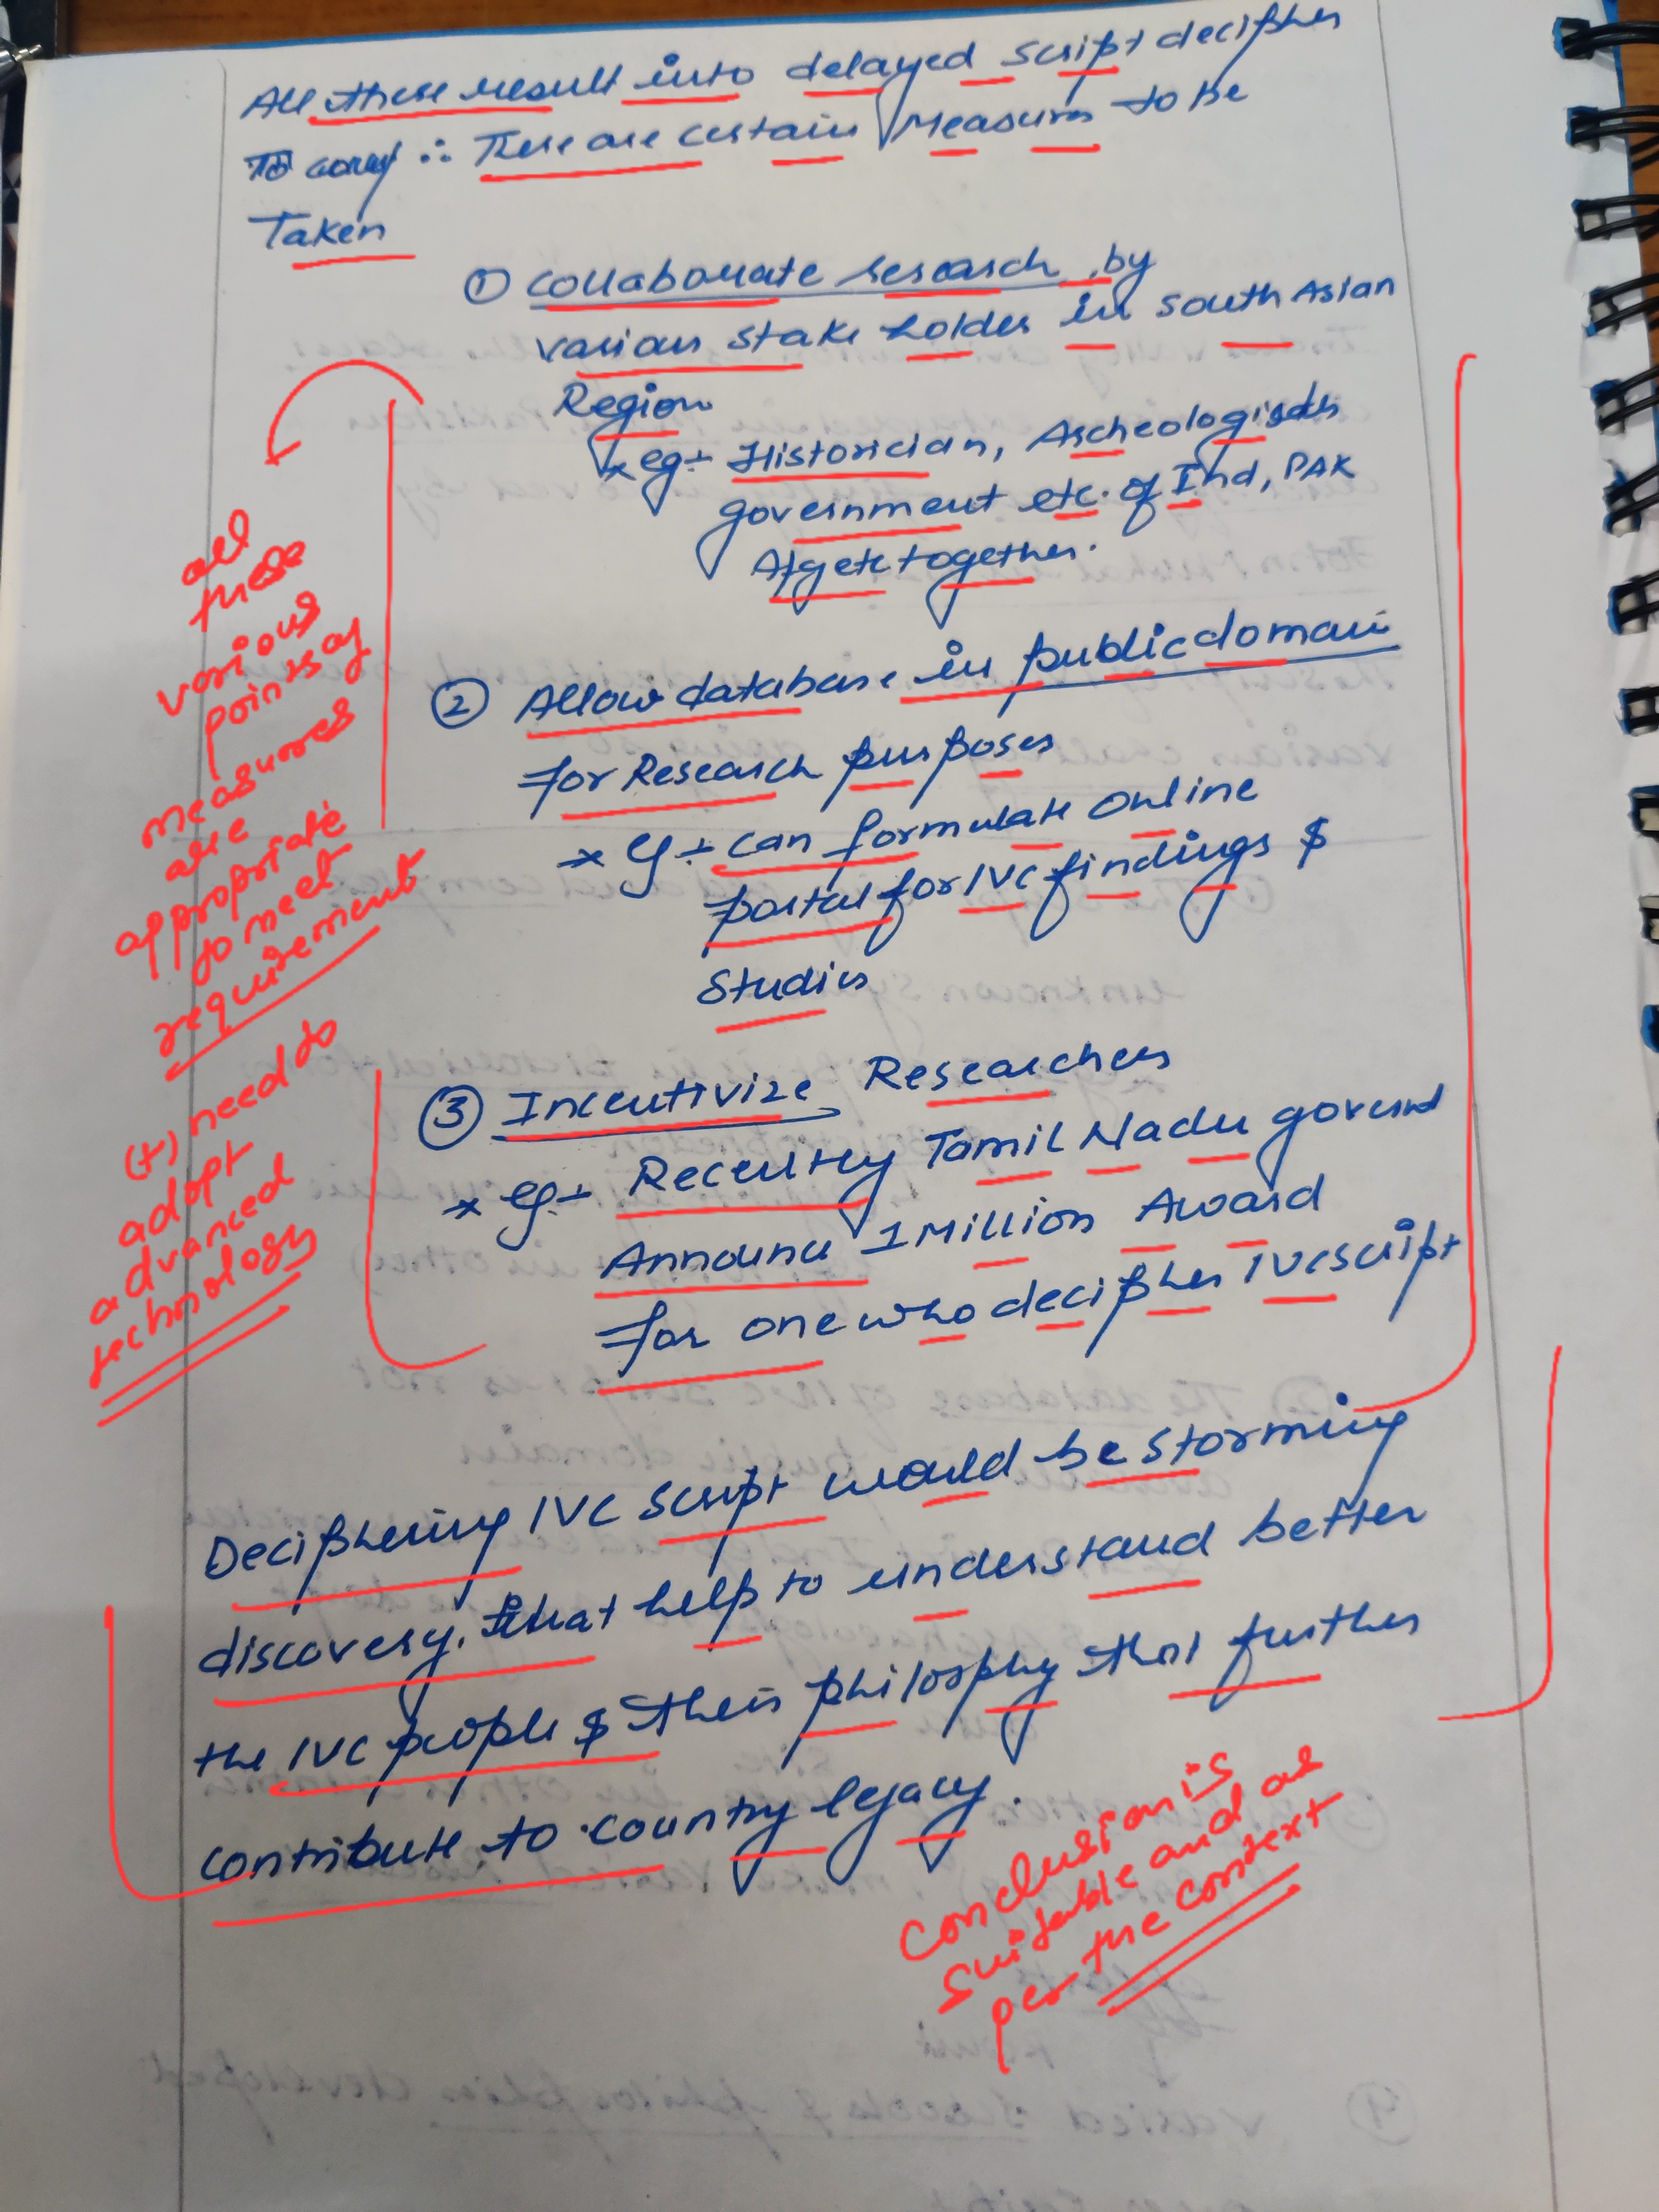 All these result into delayed script decipher
To carry ∴ There are certain Measures to be
Taken
① collaborate research by
various stake holder in south Asian
Region
* eg:- Historician, Archeologists
government etc. of Ind, PAK
Afgetc together.
② Allow database in public domain
for Research purposes
* eg:- can formulate online
portal for IVC findings &
Studies
③ Incentivize Researchers
* eg:- Recently Tamil Nadu governt
Announce 1 Million Award
for one who decipher IVC script
Deciphering IVC script would be storming
discovery. that help to understand better
the IVC people & their philosphy that further
contribute to country legacy.
all
these
various
points of
measures
are
appropriate
to meet
requirement
(+) need to
adopt
advanced
technology
Conclusion is
suitable and as
per the context